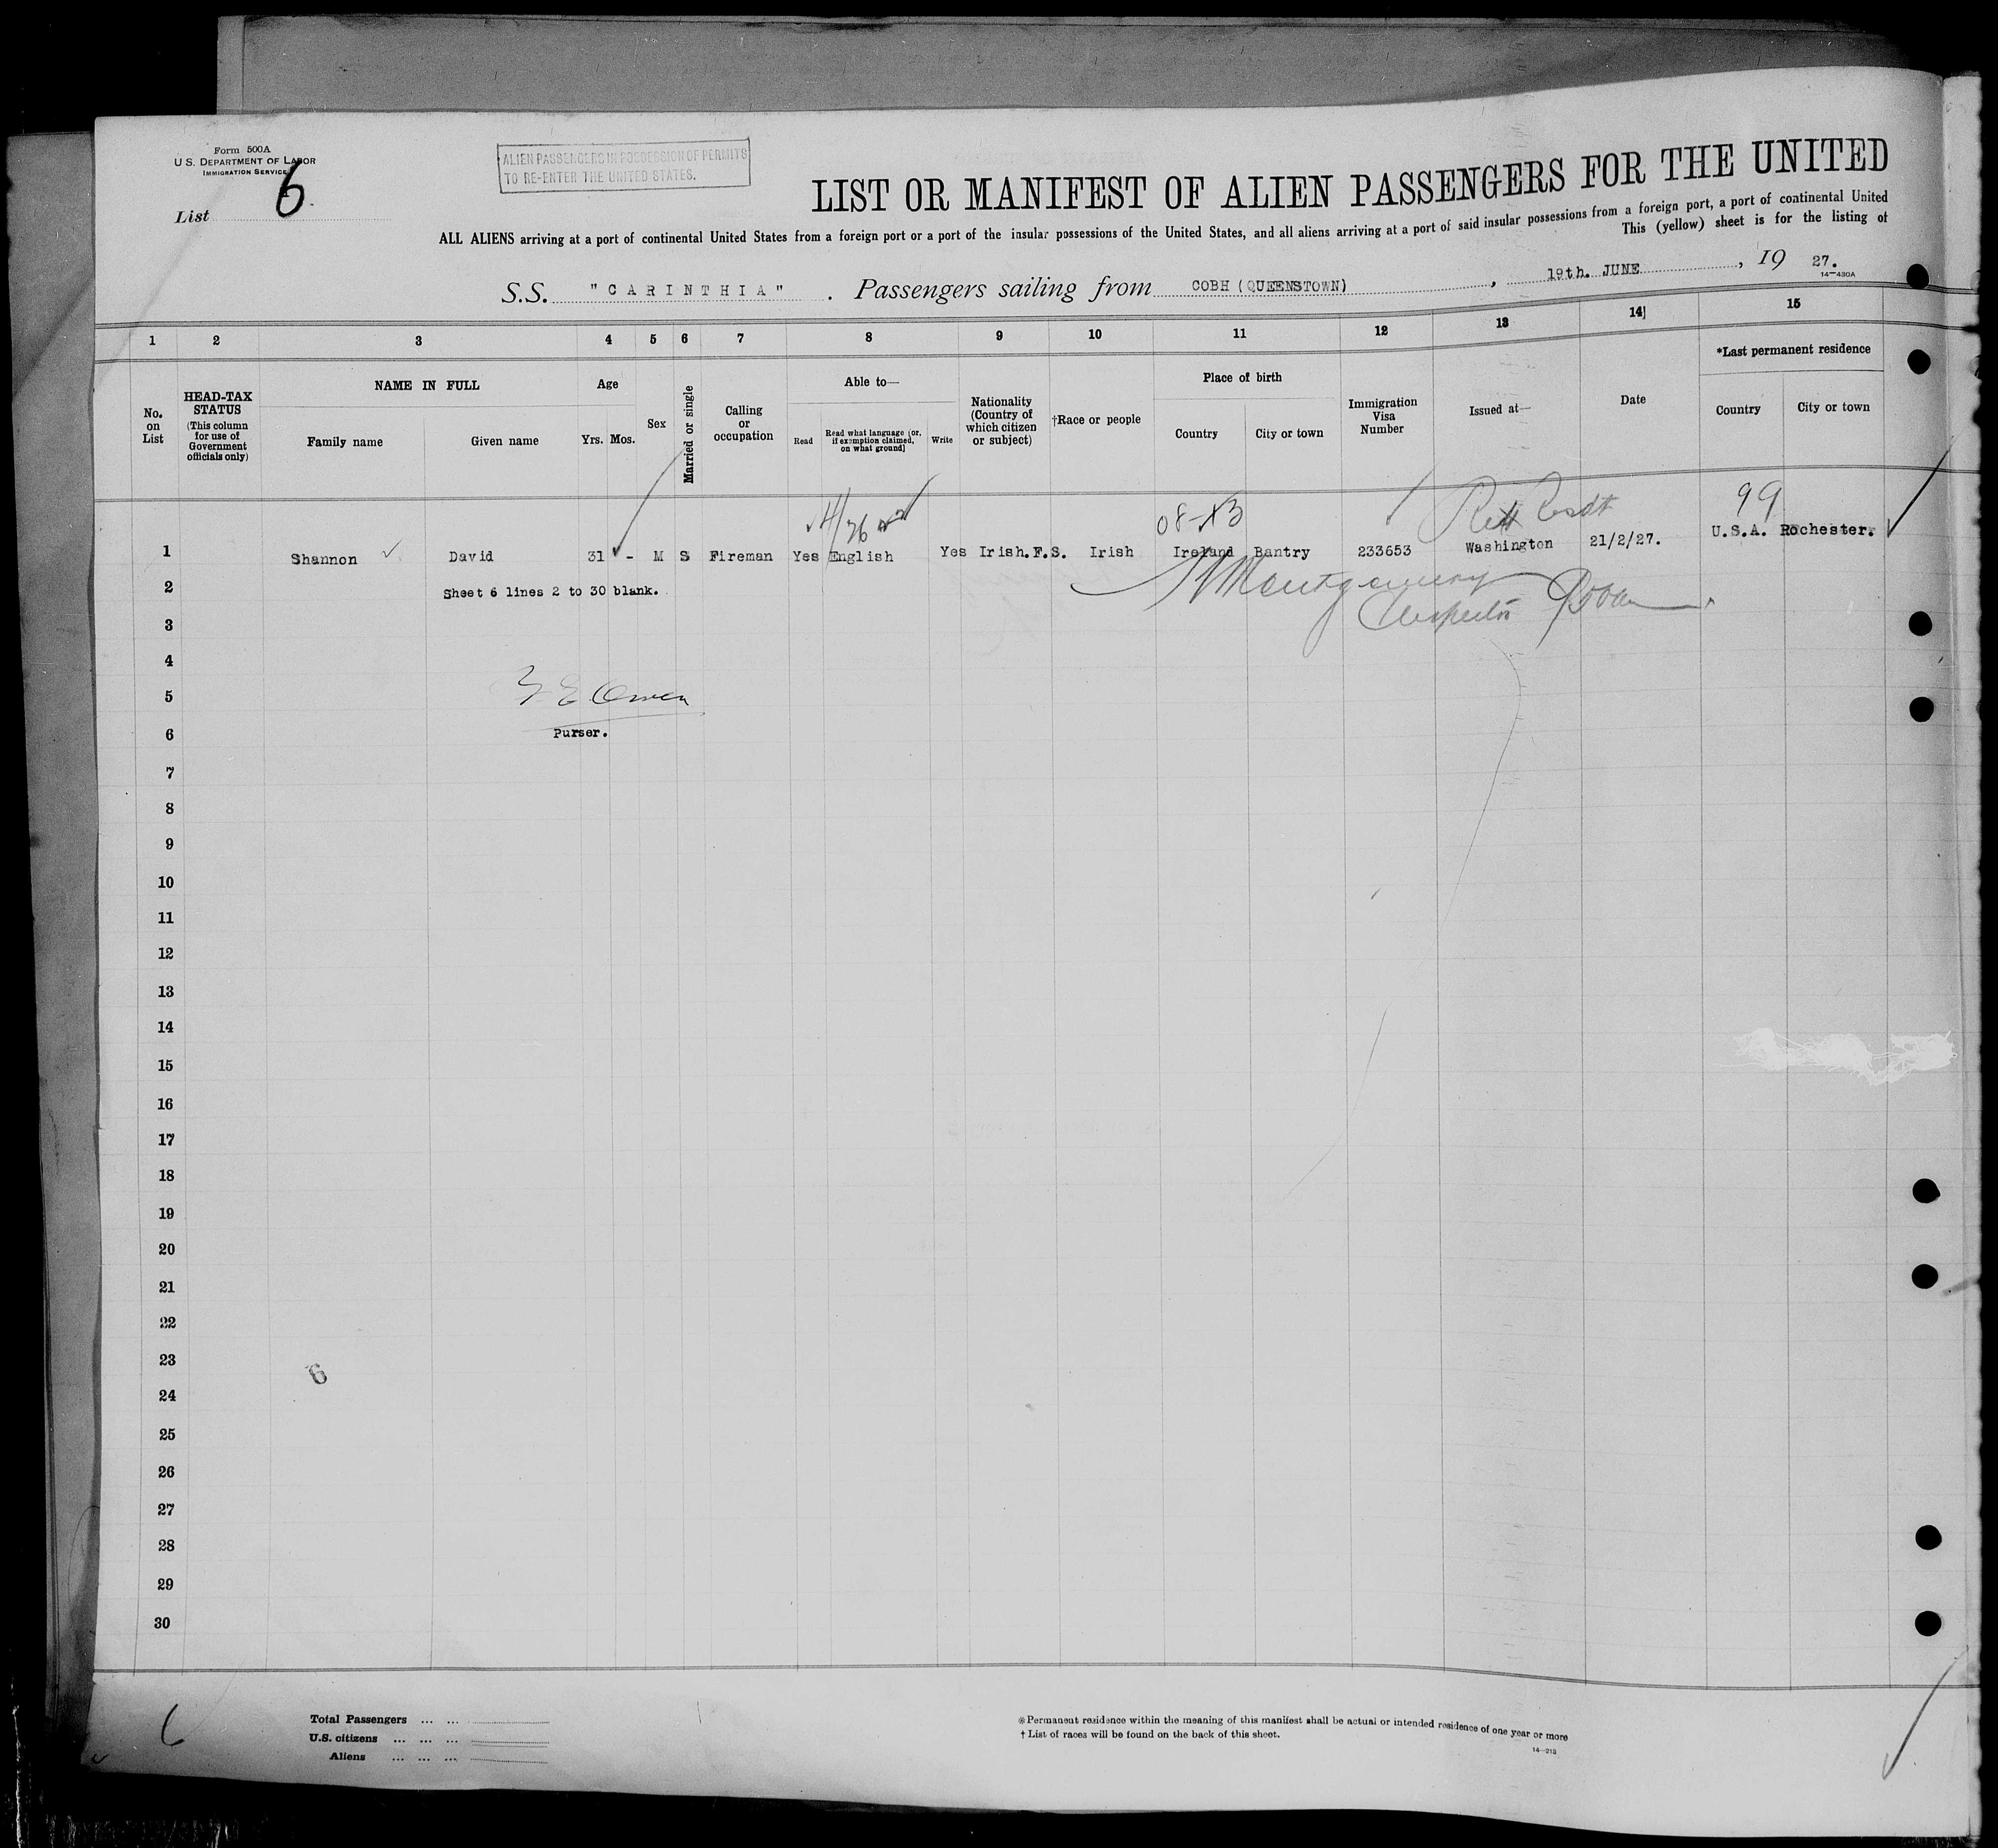 Form 500A
U.S. DEPARTMENT OF LABOR
IMMIGRATION SERVICE
List 6
ALIEN PASSENGERS IN POSSESSION OF PERMITS
TO RE-ENTER THE UNITED STATES.
LIST OR MANIFEST OF ALIEN PASSENGERS FOR THE UNITED
ALL ALIENS arriving at a port of continental United States from a foreign port or a port of the insular possessions of the United States, and all aliens arriving at a port of said insular possessions from a foreign port, a port of continental United
This (yellow) sheet is for the listing of
S.S. "CARINTHIA" . Passengers sailing from COBH (QUEENSTOWN) , 19th. JUNE , 19 27.
14-430A
1 2 3 4 5 6 7 8 9 10 11 12 13 14 15
No. on List
HEAD-TAX STATUS (This column for use of Government officials only)
NAME IN FULL
Family name Given name
Age
Yrs. Mos.
Sex
Married or single
Calling or occupation
Able to—
Read
Read what language [or, if exemption claimed, on what ground]
Write
Nationality (Country of which citizen or subject)
†Race or people
Place of birth
Country City or town
Immigration Visa Number
Issued at—
Date
*Last permanent residence
Country City or town
99
1 Shannon David 31 - M S Fireman Yes English Yes Irish.F.S. Irish Ireland Bantry 233653 Washington 21/2/27. U.S.A. Rochester.
2 Sheet 6 lines 2 to 30 blank.
Montgomery
Inspector
3
4
5
Owen
6 Purser.
7
8
9
10
11
12
13
14
15
16
17
18
19
20
21
22
23
6
24
25
26
27
28
29
30
6
Total Passengers ... ...
U.S. citizens ... ... ...
Aliens ... ... ...
*Permanent residence within the meaning of this manifest shall be actual or intended residence of one year or more
† List of races will be found on the back of this sheet.
14-213